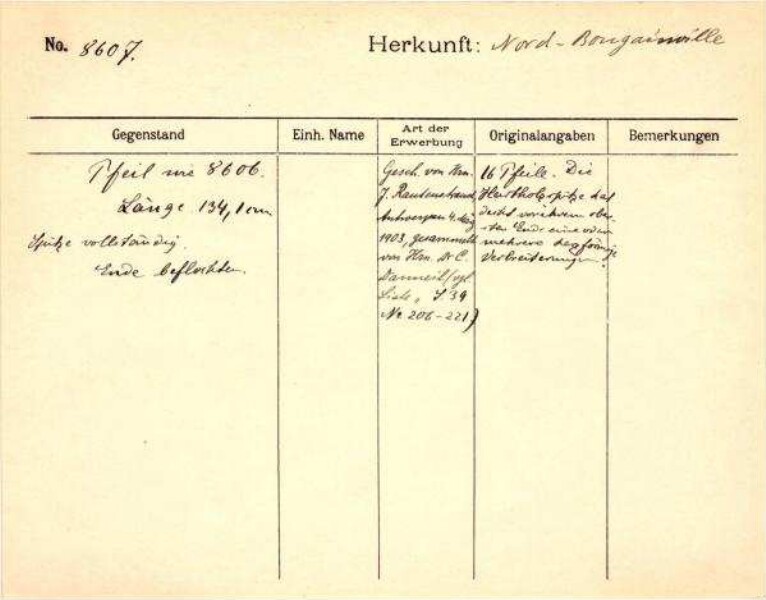 No. 8607.
Herkunft: Nord-Bougainville
Gegenstand
Einh. Name
Art der
Erwerbung
Originalangaben
Bemerkungen
Pfeil wie 8606.
Länge 134,1 cm
Spitze vollständig.
Ende beflochten.
Gesch. von Hrn.
J. Rautenstrauch,
Antwerpen 4. Mai
1903, gesammelt
von Hrn. Dr C.
Danneil (vgl
Liste, S 39
No 206-221)
16 Pfeile. Die
Hartholzspitze hat
dicht vor ihrem ober-
sten Ende eine oder
mehrere
Verbreiterungen.